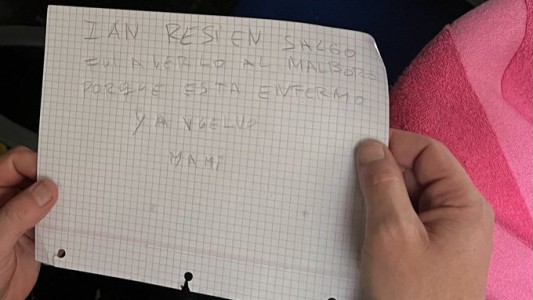 IAN RESIEN SALGO
FUI A VERLO AL MALBORO
PORQUE ESTA ENFERMO
YA VUELVO
MAMI